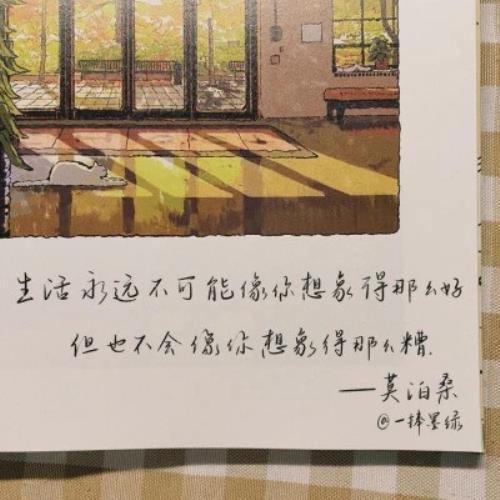 生活永远不可能像你想象得那么好
但也不会像你想象得那么糟.
——莫泊桑
@一捧墨绿